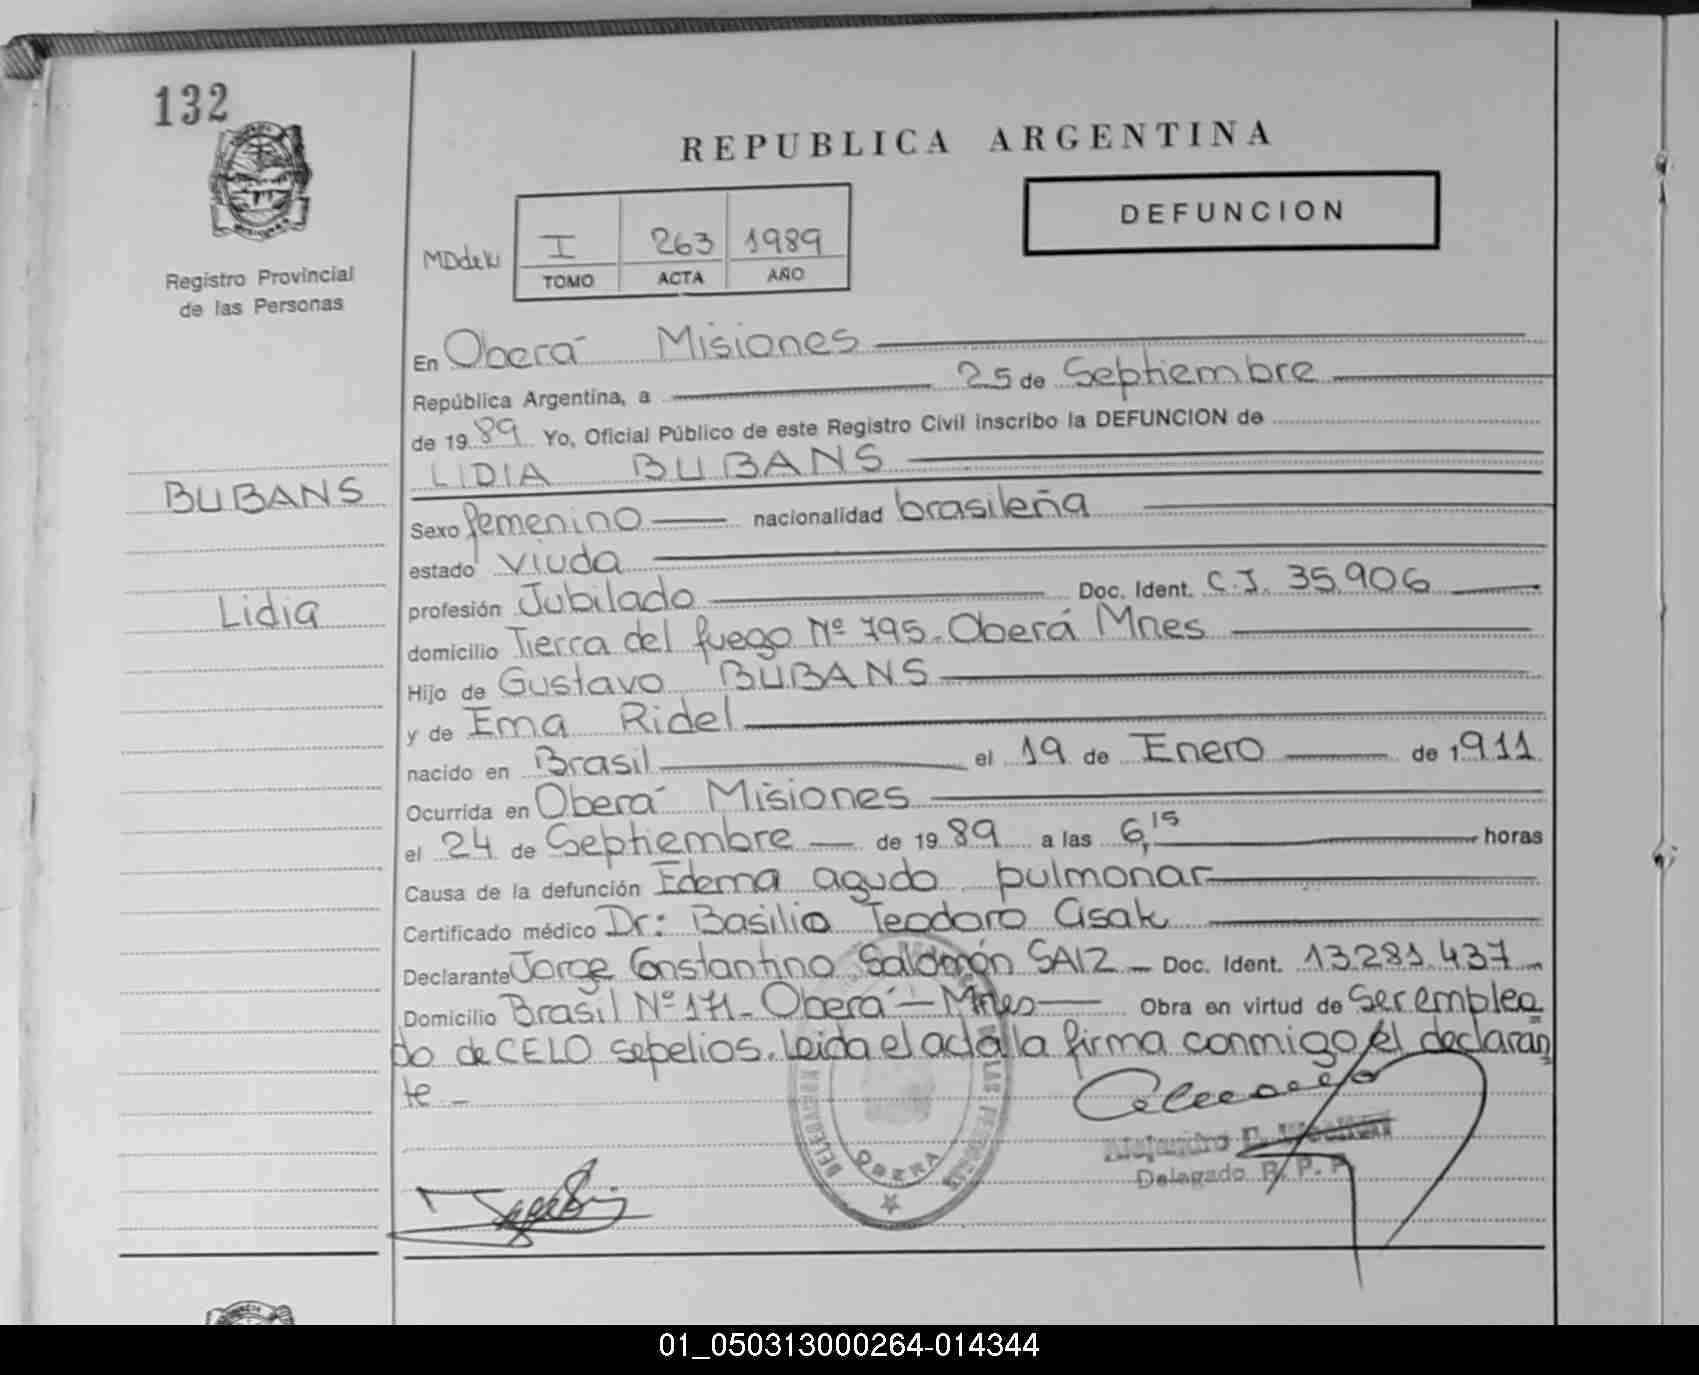 132
REPUBLICA ARGENTINA
DEFUNCION
I 263 1989
TOMO ACTA AÑO
Registro Provincial
de las Personas
En Oberá Misiones
República Argentina, a 25 de Septiembre
de 1989 Yo, Oficial Público de este Registro Civil inscribo la DEFUNCION de
LIDIA BUBANS
BUBANS
Lidia
Sexo femenino nacionalidad brasileña
estado viuda
profesión Jubilado Doc. Ident. C.I. 35.906
domicilio Tierra del fuego Nº 795. Oberá Mnes
Hijo de Gustavo BUBANS
y de Ema Ridel
nacido en Brasil el 19 de Enero de 1911
Ocurrida en Oberá Misiones
el 24 de Septiembre de 1989 a las 6,15 horas
Causa de la defunción Edema agudo pulmonar
Certificado médico Dr: Basilio Teodoro
Declarante Jorge Constantino Salomón SAIZ - Doc. Ident. 13.281.437
Domicilio Brasil Nº 171 - Oberá - Mnes - Obra en virtud de Ser emplea
do de CELO sepelios. Leida el acta la firma conmigo el declaran
te -
OBERA
Alejandro
Delegado R. P. P.
01_050313000264-014344